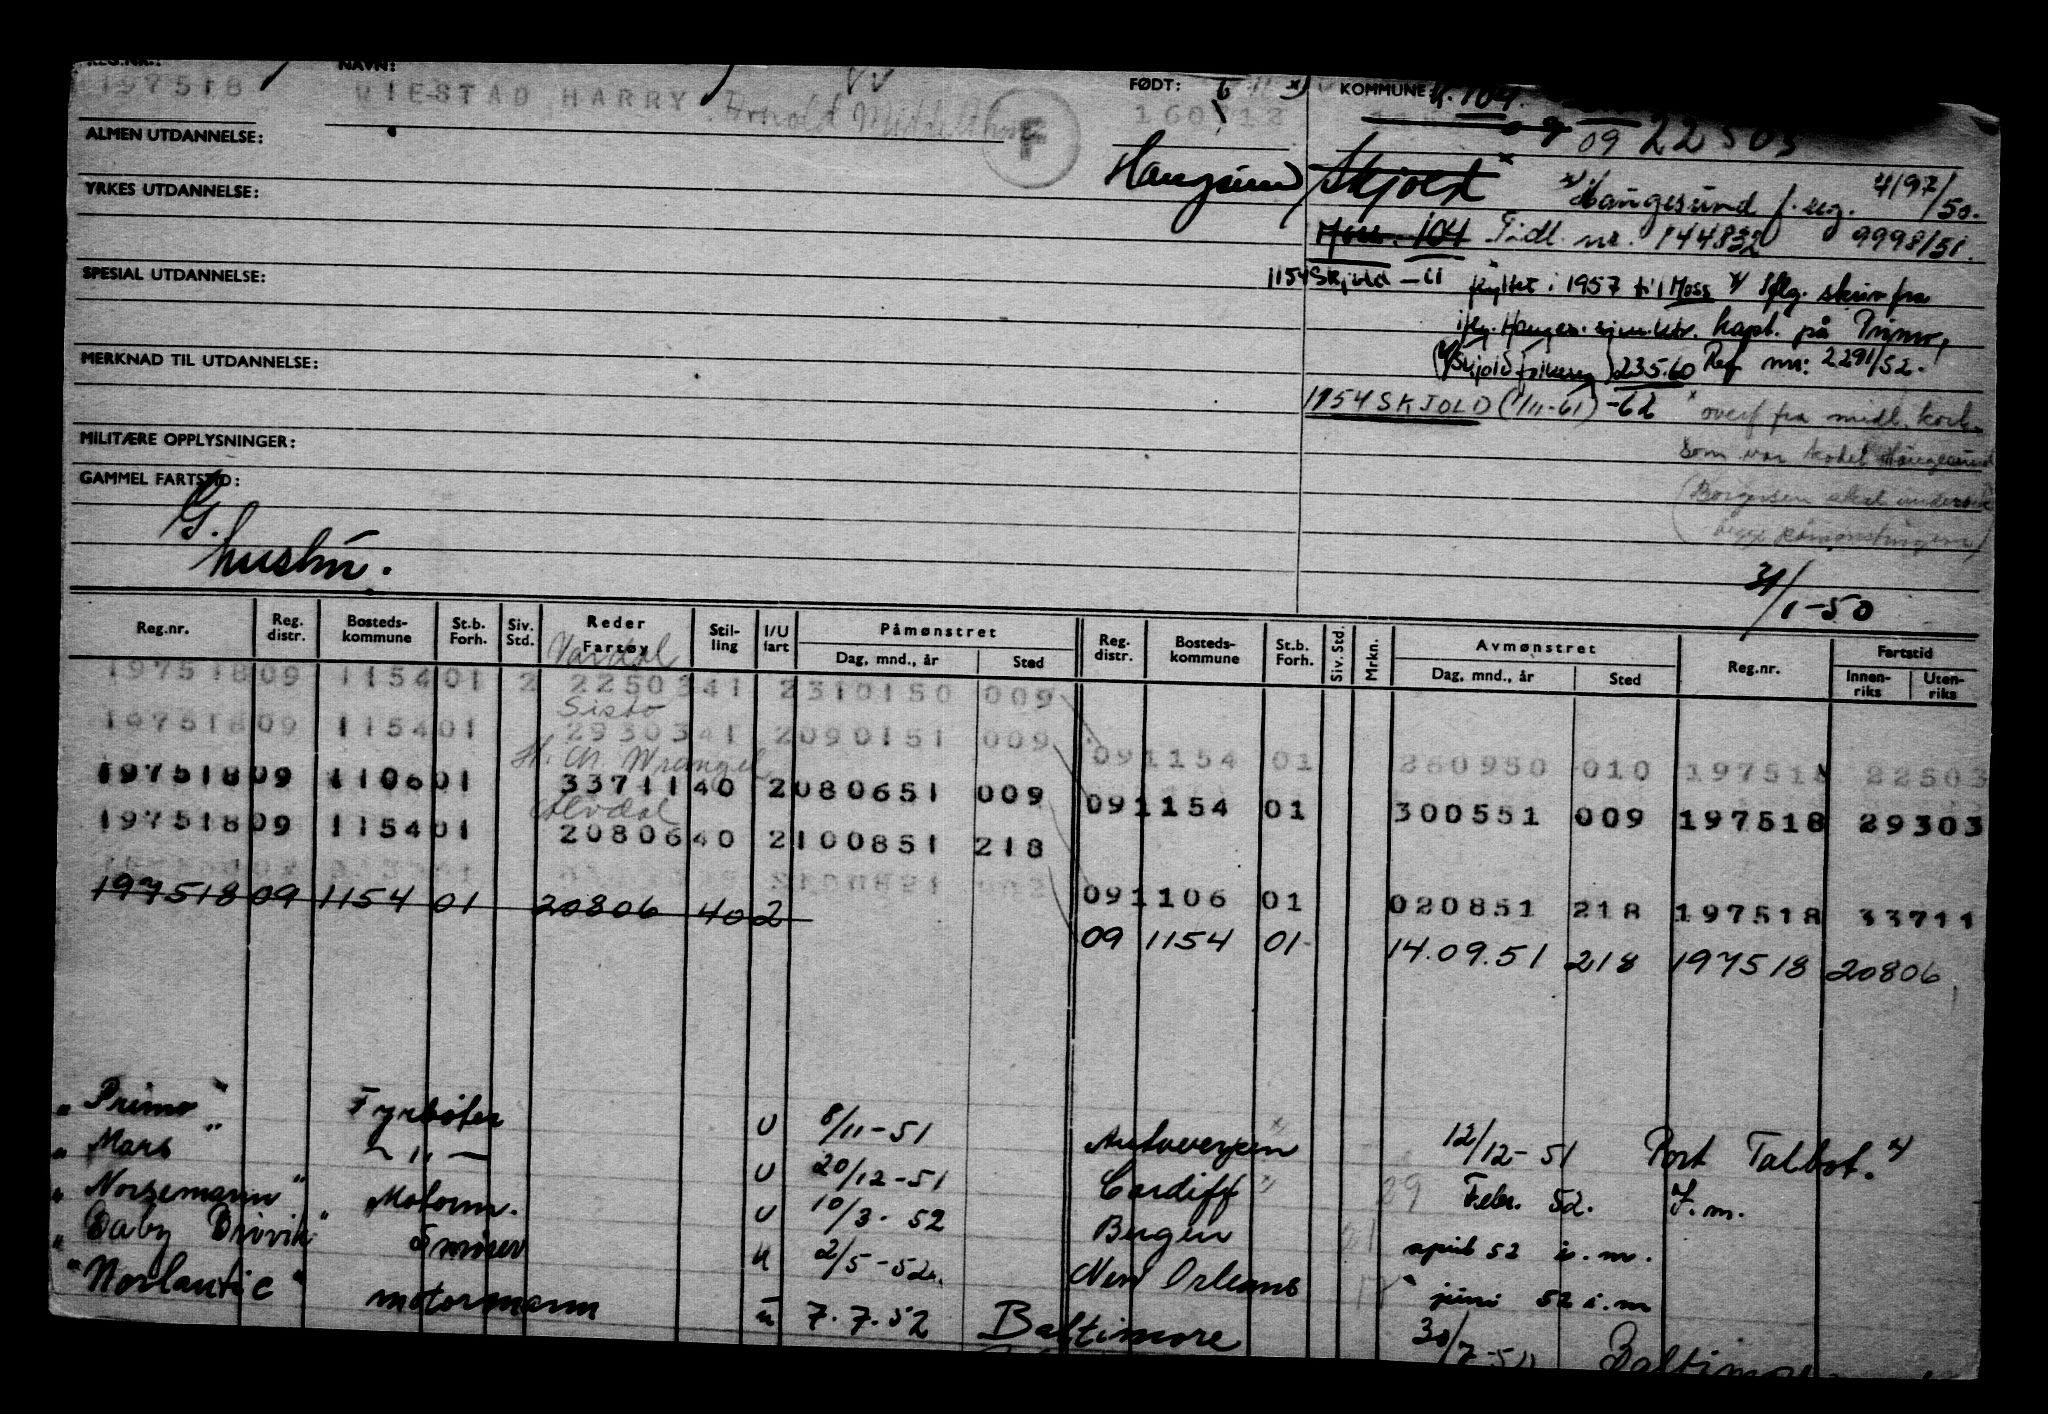 REG.NR.: NAVN: FØDT: 6 KOMMUNE: 104.
197518 VIESTAD HARRY Arnold 160 12
F 09 22503
ALMEN UTDANNELSE:
Haugesund Skjold x Haugesund f. reg. 4197/50.
YRKES UTDANNELSE:
Moss. 104 Tidl. nr. 144832 9998/51.
SPESIAL UTDANNELSE:
1154 Skjold - 61 flyttet i 1957 til Moss iflg. skriv fra
kapt. på Primo,
MERKNAD TIL UTDANNELSE:
23.5.60 Ref nr: 2291/52.
1154 SKJOLD (1/11-61) -62 x overf fra midl. kort
MILITÆRE OPPLYSNINGER:
som var kodet Haugesund
GAMMEL FARTSTID:
G.
hustru.
31/1-50
Reg.nr. Reg. distr. Bosteds-kommune St.b. Forh. Siv. Std. Reder Fartøy Stil-ling I/U fart Påmønstret Dag, mnd., år Sted Reg. distr. Bosteds-kommune St.b. Forh. Siv. Std. Mrkn. Avmønstret Dag, mnd., år Sted Reg.nr. Fartstid Innen-riks Uten-riks
Vardal
197518 09 1154 01 2 22503 41 2 310150 009
Sisto
197518 09 1154 01 29303 41 2 090151 009
09 1154 01 280950 010 197518 22503
H. Ch. Wrangel
197518 09 1106 01 33711 40 2 080651 009
09 1154 01 300551 009 197518 29303
Alvdal
197518 09 1154 01 20806 40 2 100851 218
09 1106 01 020851 218 197518 33711
197518 09 1154 01 20806 40 2
09 1154 01 14.09.51 218 197518 20806
"Primo" Fyrbøter U 8/11-51 Antwerpen 12/12-51 Port Talbot.
"Mars" - " - U 20/12-51 Cardiff 29 Febr. 52. I.m.
"Norsemann" Motorm. U 10/3. 52 Bergen 21 april 52 i.m.
"Baby Brøvik" Smører U 2/5-52. New Orleans 17 juni 52 i.m
"Norlantic" motormann u 7.7.52 Baltimore 30/7-51